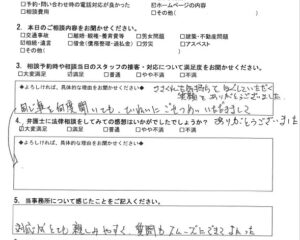 □予約・問い合わせ時の電話対応が良かった ☑ホームページの内容
□相談費用 □その他( )
2. 本日のご相談内容をお聞かせください。
□交通事故 □離婚・親権・養育費等 □労災問題 □建築・不動産問題
☑相続・遺言 □借金(債務整理・過払金) □労災 □アスベスト
□その他( )
3. 相談予約時や相談当日のスタッフの接客・対応について満足度をお聞かせください。
☑大変満足 □満足 □普通 □やや不満 □不満
◆よろしければ、具体的な理由をお聞かせください
ありがとうございました。
同じ事を何度聞いても、ていねいに
4. 弁護士に法律相談をしてみての感想はいかがでしたでしょうか?
ありがとうございました
☑大変満足 □満足 □普通 □やや不満 □不満
◆よろしければ、具体的な理由をお聞かせください
5. 当事務所について感じたことをご記入ください。
対応がとても親しみやすく、質問もスムーズにできてよかった